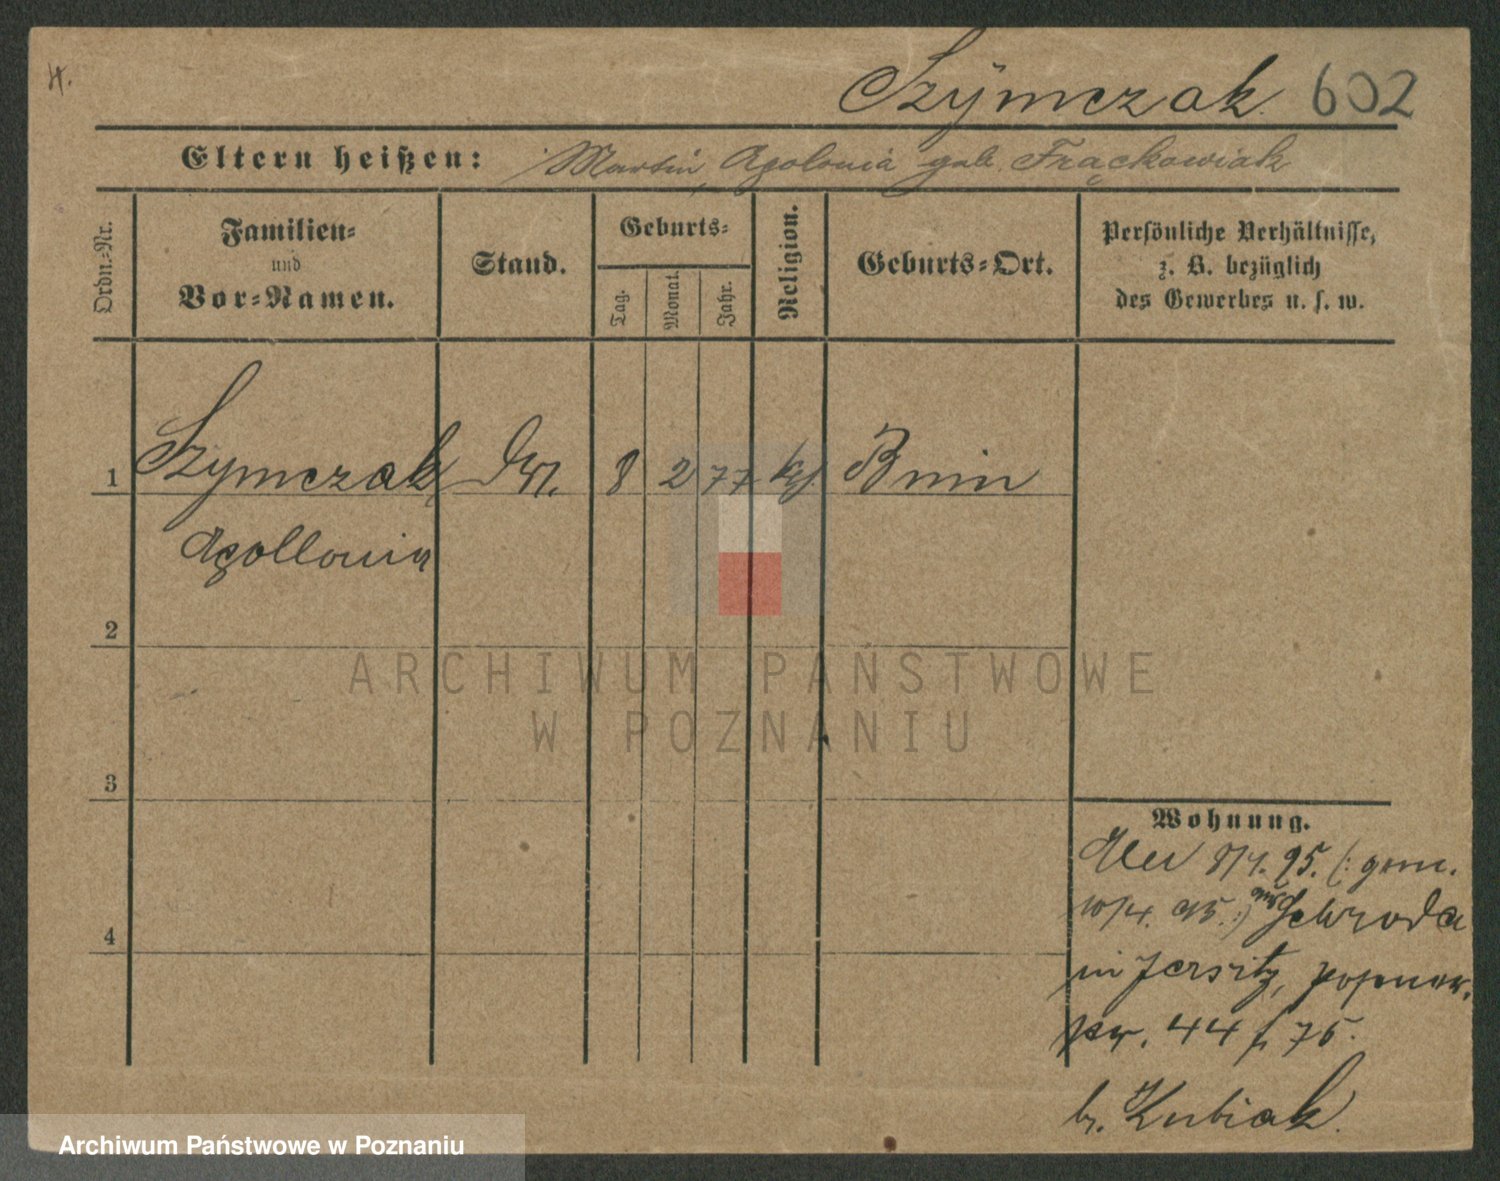 Szÿmczak. 602
Eltern heißen: Martin, Apolonia geb. Frąckowiak
Ordn.-Nr.
Familien-
und
Vor-Namen.
Stand.
Geburts-
Tag.
Monat.
Jahr.
Religion.
Geburts-Ort.
Persönliche Verhältnisse,
z. B. bezüglich
des Gewerbes u. s. w.
1 Szymczak 8 2 77 Bnin
Apollonia
2
3
4
Wohnung.
8/4. 95. (: gem.
10/4. 95. :) aus Schroda
in Jersitz, Posener-
str. 44 f. 75.
b. Kubiak.
ARCHIWUM PAŃSTWOWE
W POZNANIU
Archiwum Państwowe w Poznaniu